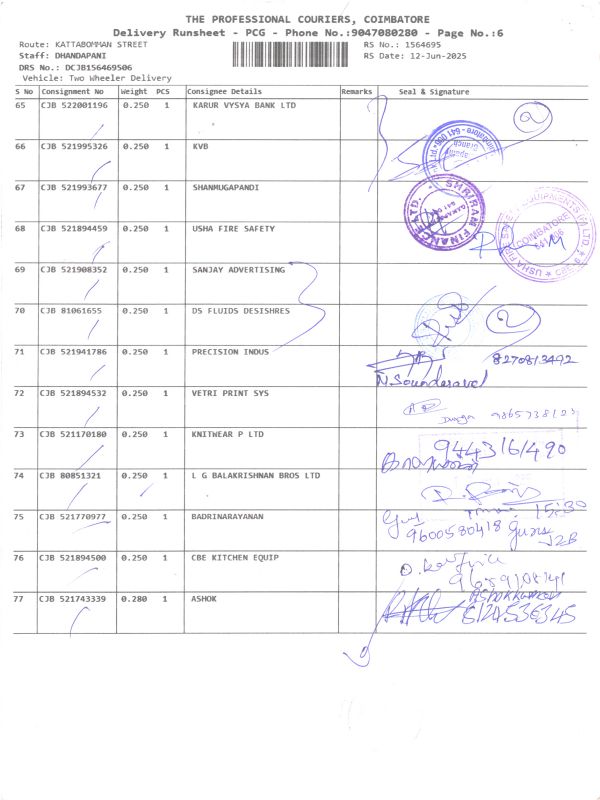 THE PROFESSIONAL COURIERS, COIMBATORE
Delivery Runsheet - PCG - Phone No.:9047080280 - Page No.:6
Route: KATTABOMMAN STREET
RS No.: 1564695
Staff: DHANDAPANI
RS Date: 12-Jun-2025
DRS No.: DCJB156469506
Vehicle: Two Wheeler Delivery
S No Consignment No Weight PCS Consignee Details Remarks Seal & Signature
65 CJB 522001196 0.250 1 KARUR VYSYA BANK LTD
2
66 CJB 521995326 0.250 1 KVB
67 CJB 521993677 0.250 1 SHANMUGAPANDI
SHRIRAM FINANCE LTD.
68 CJB 521894459 0.250 1 USHA FIRE SAFETY
USHA FIRE SAFETY EQUIPMENTS (P) LTD.
COIMBATORE
69 CJB 521908352 0.250 1 SANJAY ADVERTISING
70 CJB 81061655 0.250 1 D5 FLUIDS DESISHRES
2
71 CJB 521941786 0.250 1 PRECISION INDUS
8270813492
N. Soundaravel
72 CJB 521894532 0.250 1 VETRI PRINT SYS
Durga
73 CJB 521170180 0.250 1 KNITWEAR P LTD
9443161490
74 CJB 80851321 0.250 1 L G BALAKRISHNAN BROS LTD
15:30
75 CJB 521770977 0.250 1 BADRINARAYANAN
9600580418
76 CJB 521894500 0.250 1 CBE KITCHEN EQUIP
77 CJB 521743339 0.280 1 ASHOK